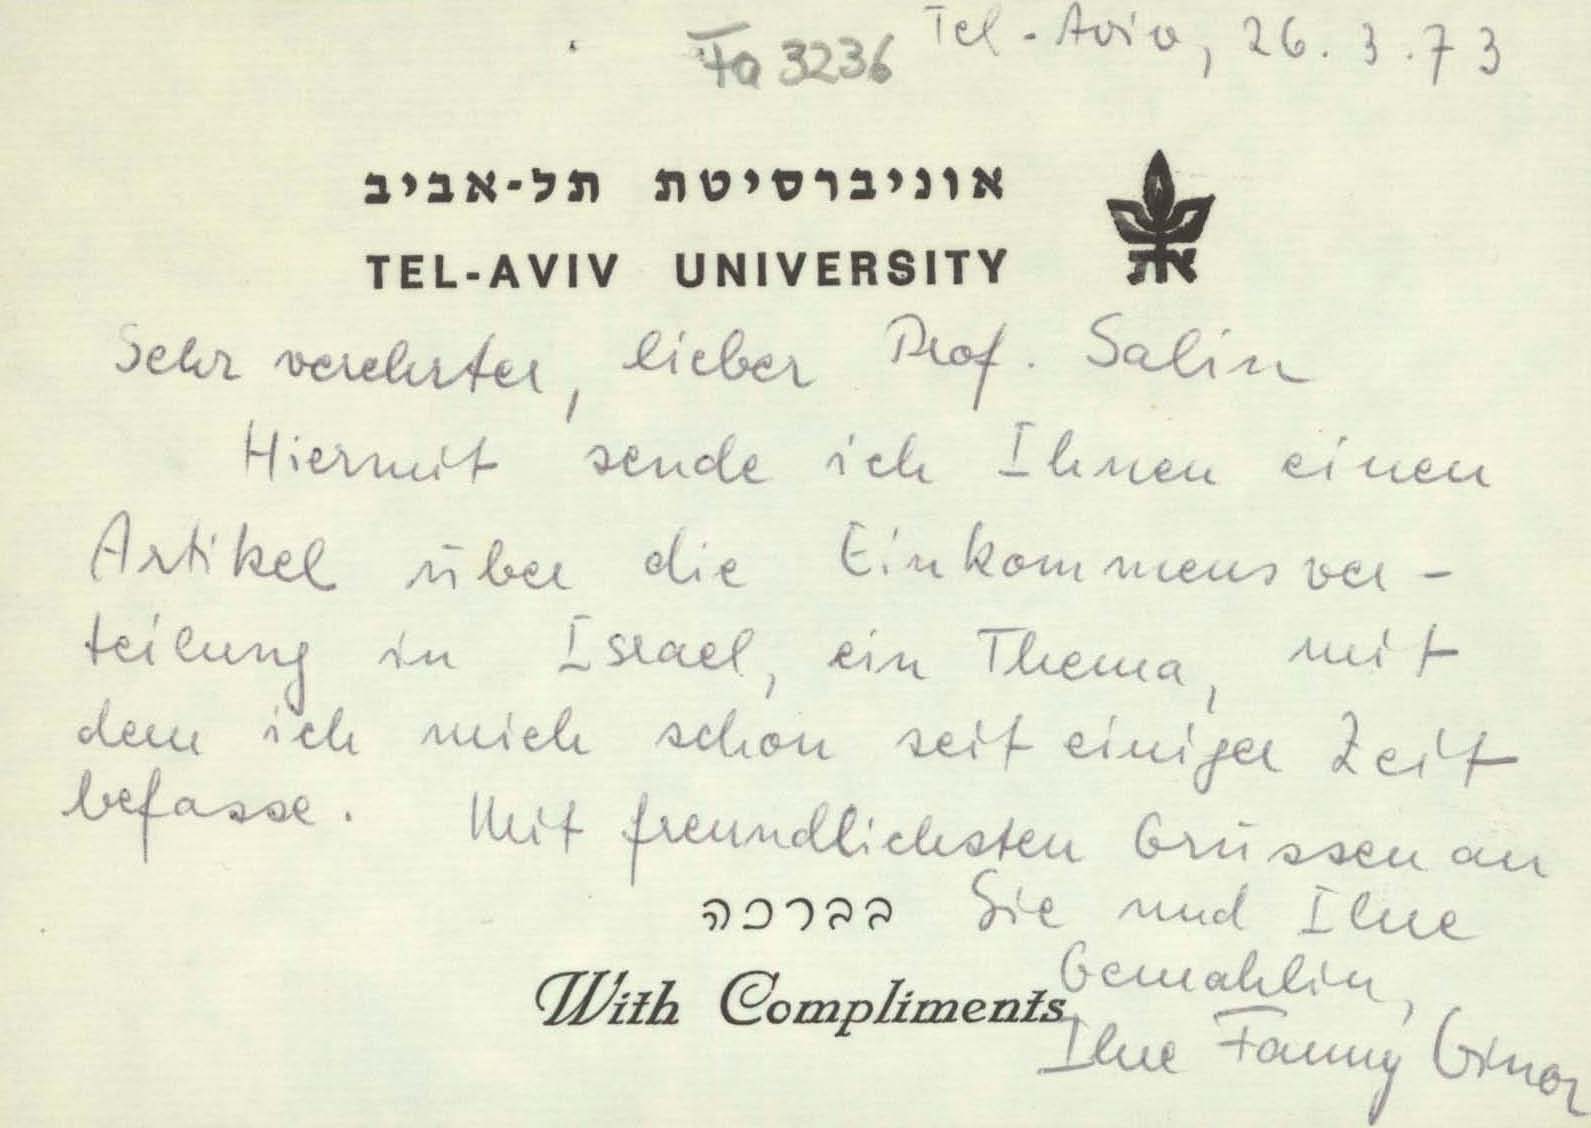 Fa 3236
Tel-Aviv, 26.3.73
אוניברסיטת תל-אביב
TEL-AVIV UNIVERSITY
Sehr verehrter, lieber Prof. Salin
Hiermit sende ich Ihnen einen
Artikel über die Einkommensver-
teilung in Israel, ein Thema, mit
dem ich mich schon seit einiger Zeit
befasse. Mit freundlichsten Grüssen an
בברכה Sie und Ihre
Gemahlin,
With Compliments
Ihre Fanny Ginor